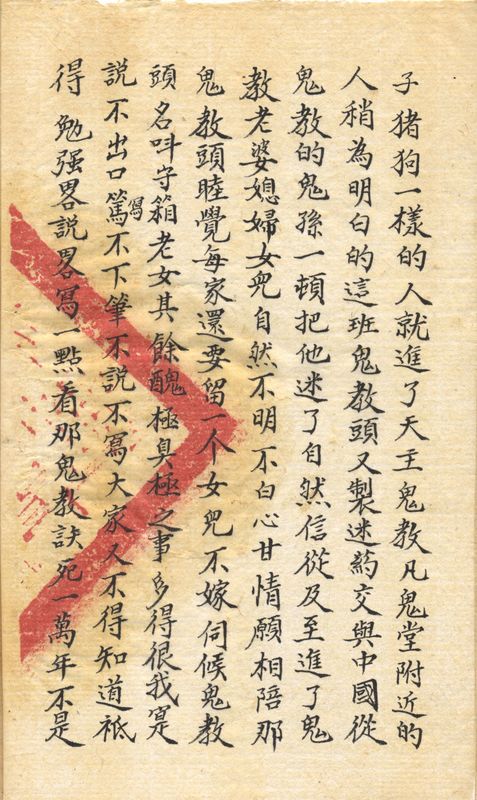 子猪狗一樣的人就進了天主鬼教凡鬼堂附近的
人稍為明白的這班鬼教頭又製迷药交與中國從
鬼教的鬼孫一頓把他迷了自然信從及至進了鬼
教老婆媳婦女兒自然不明不白心甘情願相陪那
鬼教頭睦覺每家還要留一个女兒不嫁伺候鬼教
頭名呌守箱老女其餘醜極臭極之事多得很我寔
說不出口篤寫不下筆不說不寫大家又不得知道祗
得勉强畧説畧寫一點看那鬼教訣死一萬年不是